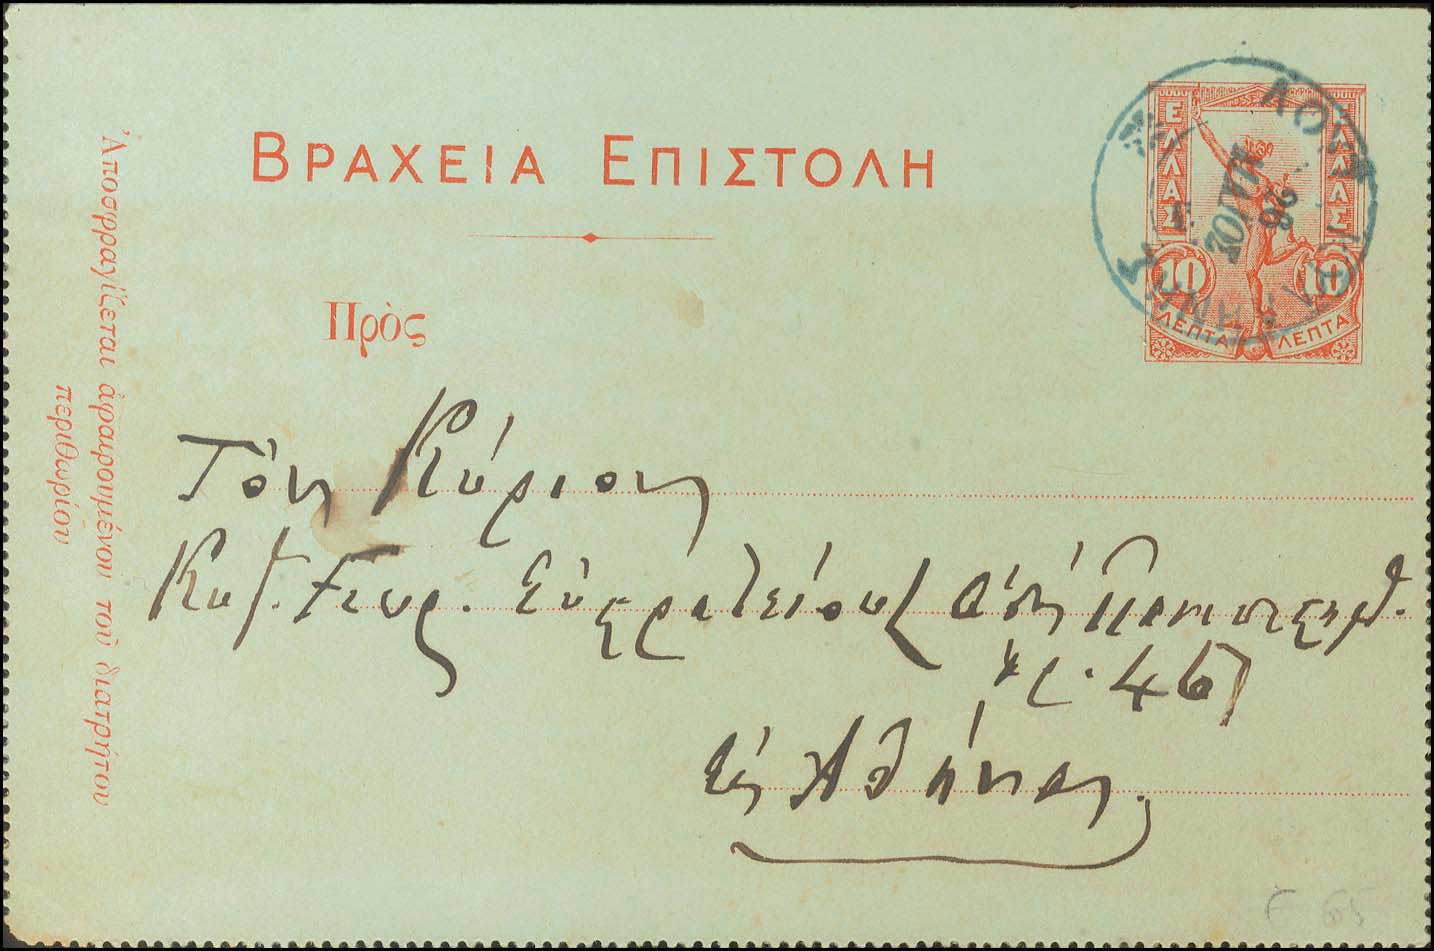 ΒΡΑΧΕΙΑ ΕΠΙΣΤΟΛΗ
Ἀποσφραγίζεται ἀφαιρουμένου τοῦ διατρήτου
περιθωρίου
ΕΛΛΑΣ
ΕΛΛΑΣ
10
10
ΛΕΠΤΑ
ΛΕΠΤΑ
Πρὸς
Τὸν Κύριον
Κυζ. Γεωρ. Εὐστρατείου
46
Εἰς Ἀθήνας.